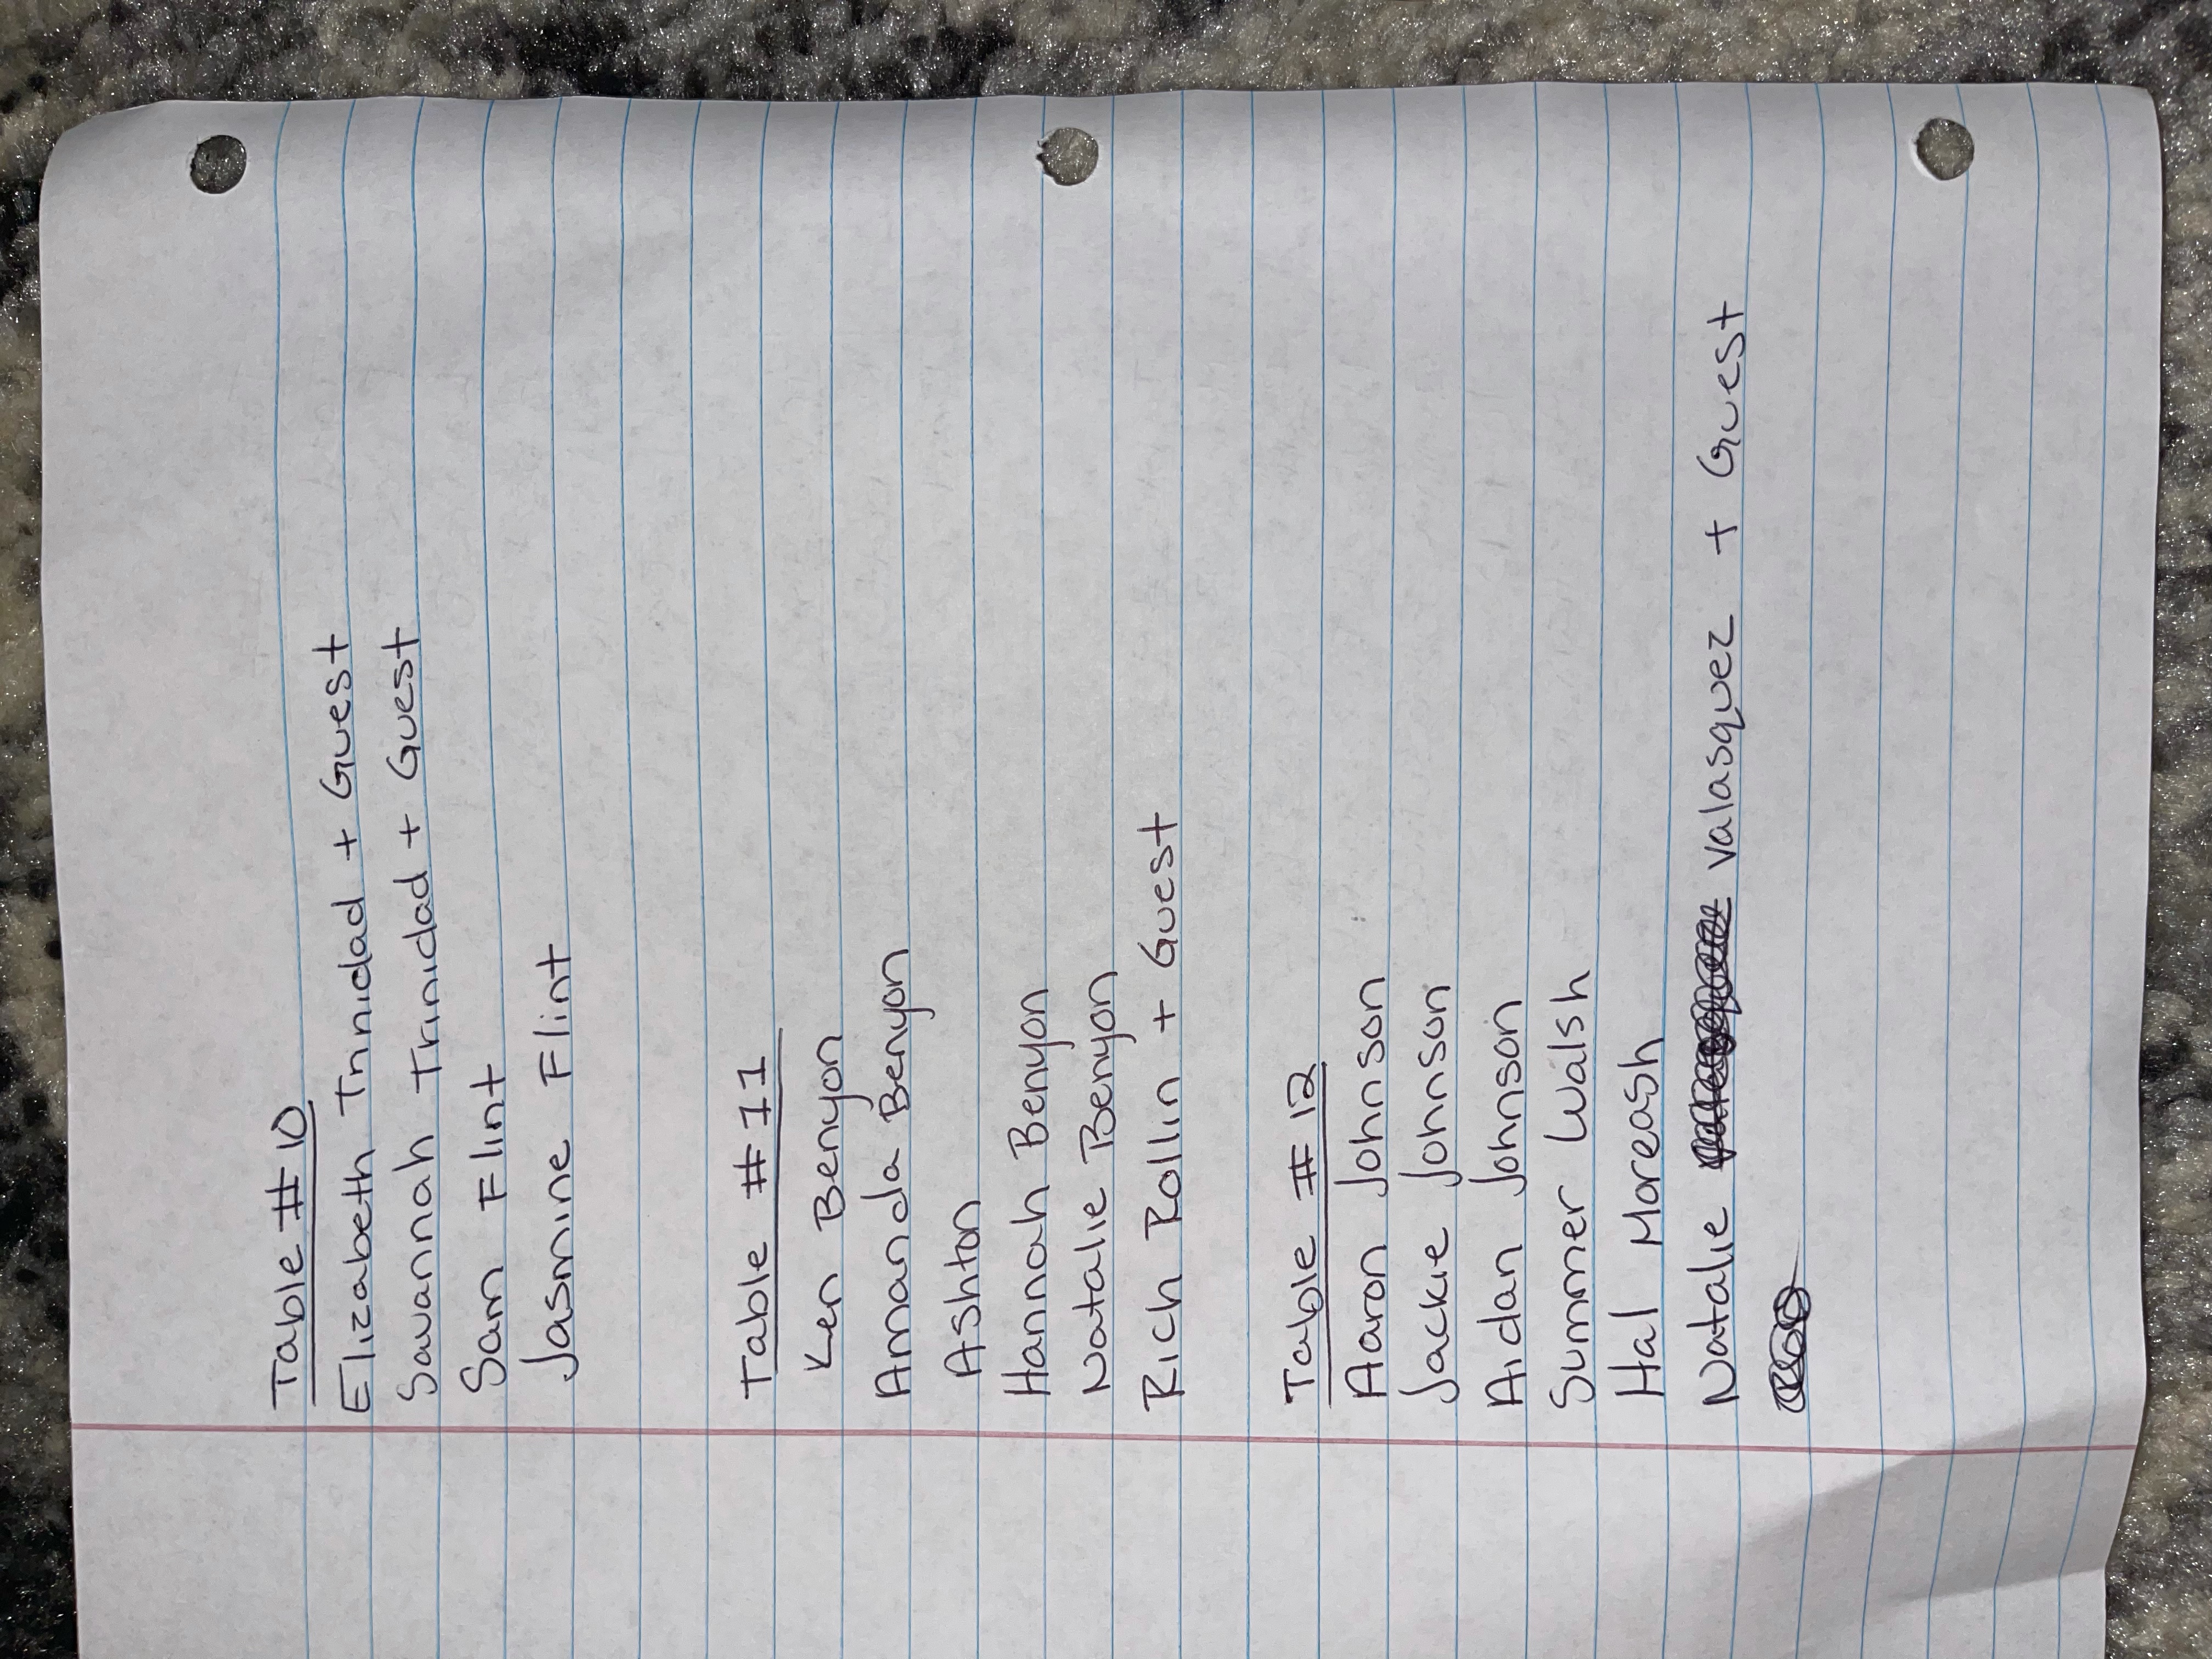 Table #10
Elizabeth Trinidad + Guest
Savannah Trinidad + Guest
Sam Flint
Jasmine Flint
Table #11
Ken Benyon
Amanda Benyon
Ashton
Hannah Benyon
Natalie Benyon
Rich Rollin + Guest
Table #12
Aaron Johnson
Jackie Johnson
Aidan Johnson
Summer Walsh
Hal Moreash
Natalie Valasquez + Guest